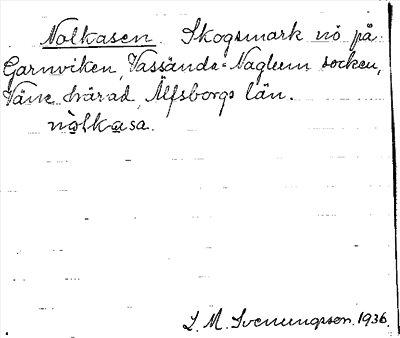 Nolkasen. Skogsmark nö på
Garnviken, Vassända-Naglum socken,
Väne härad, Älfsborgs län.
nòlkasa.
S. M. Svenungsson. 1936.